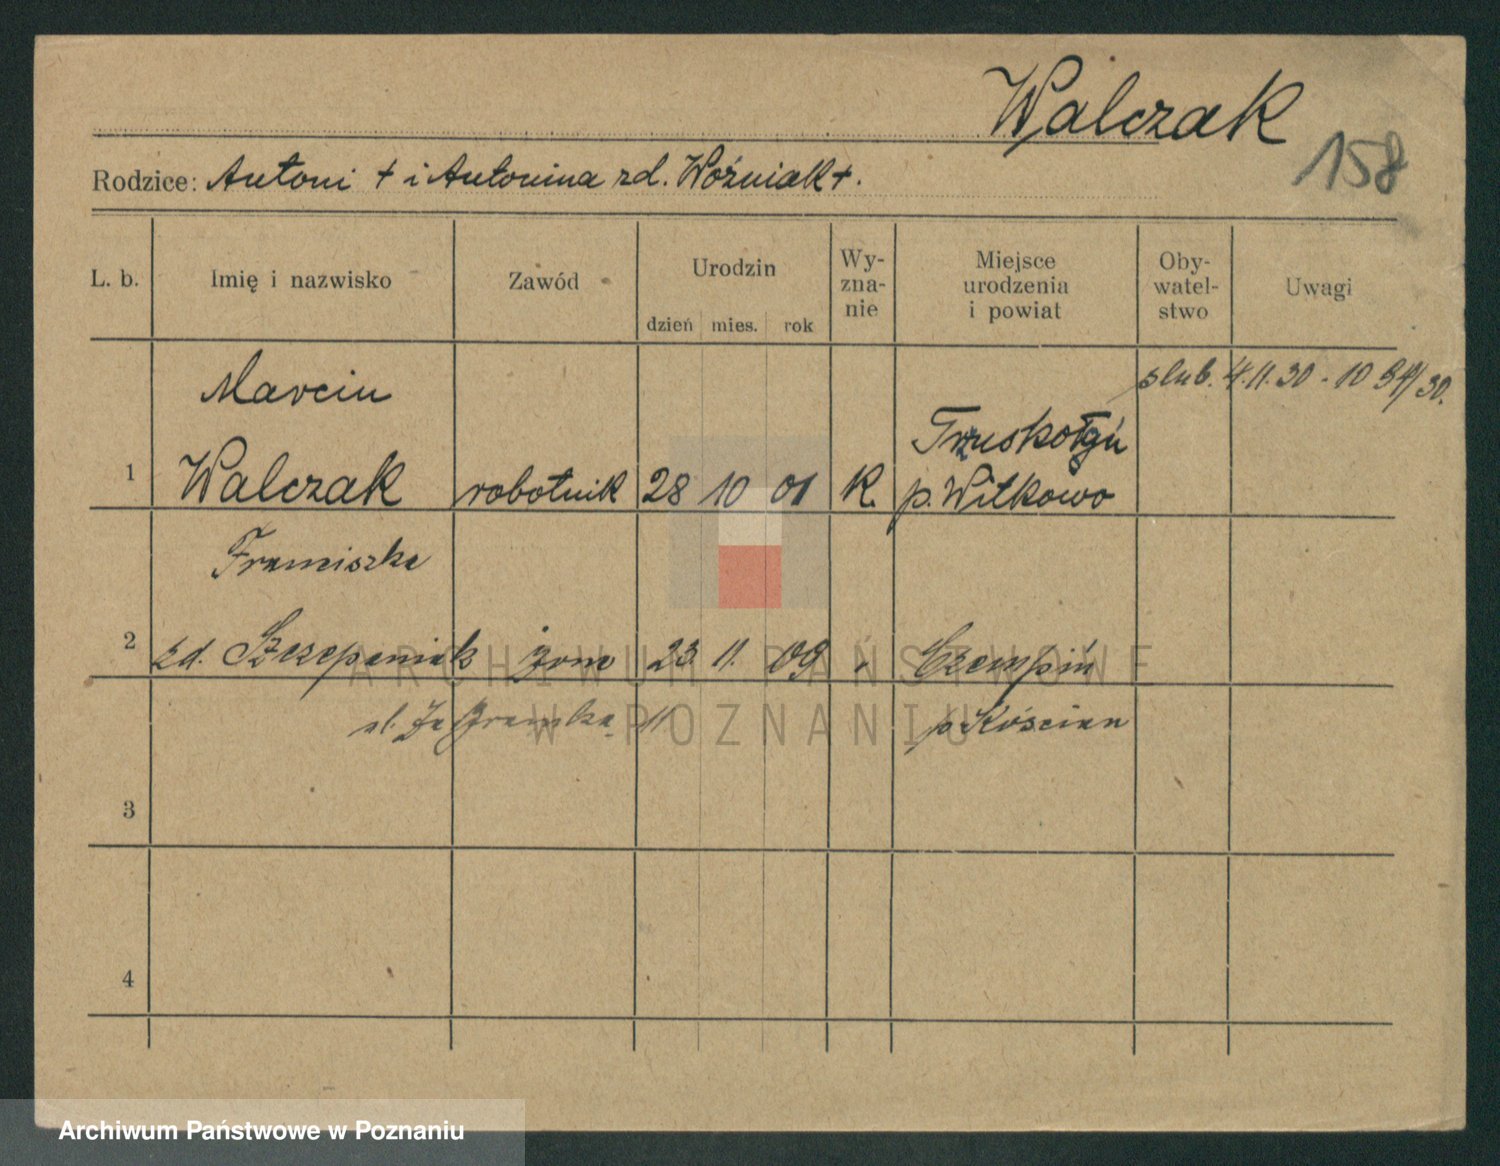 Walczak
158
Rodzice: Antoni + i Antonina zd. Woźniak +.
L. b. Imię i nazwisko Zawód Urodzin Wy-zna-nie Miejsce urodzenia i powiat Oby-watel-stwo Uwagi
dzień mies. rok
ślub. 4.11.30 - 10
Marcin
Trzuskołoń
1 Walczak robotnik 28 10 01 K. p. Witkowo
Franciszka
2 zd. Szczepaniak żona 23. 11. 09 Czempiń
11 p. Kościan
3
4
ARCHIWUM PAŃSTWOWE
W POZNANIU
Archiwum Państwowe w Poznaniu